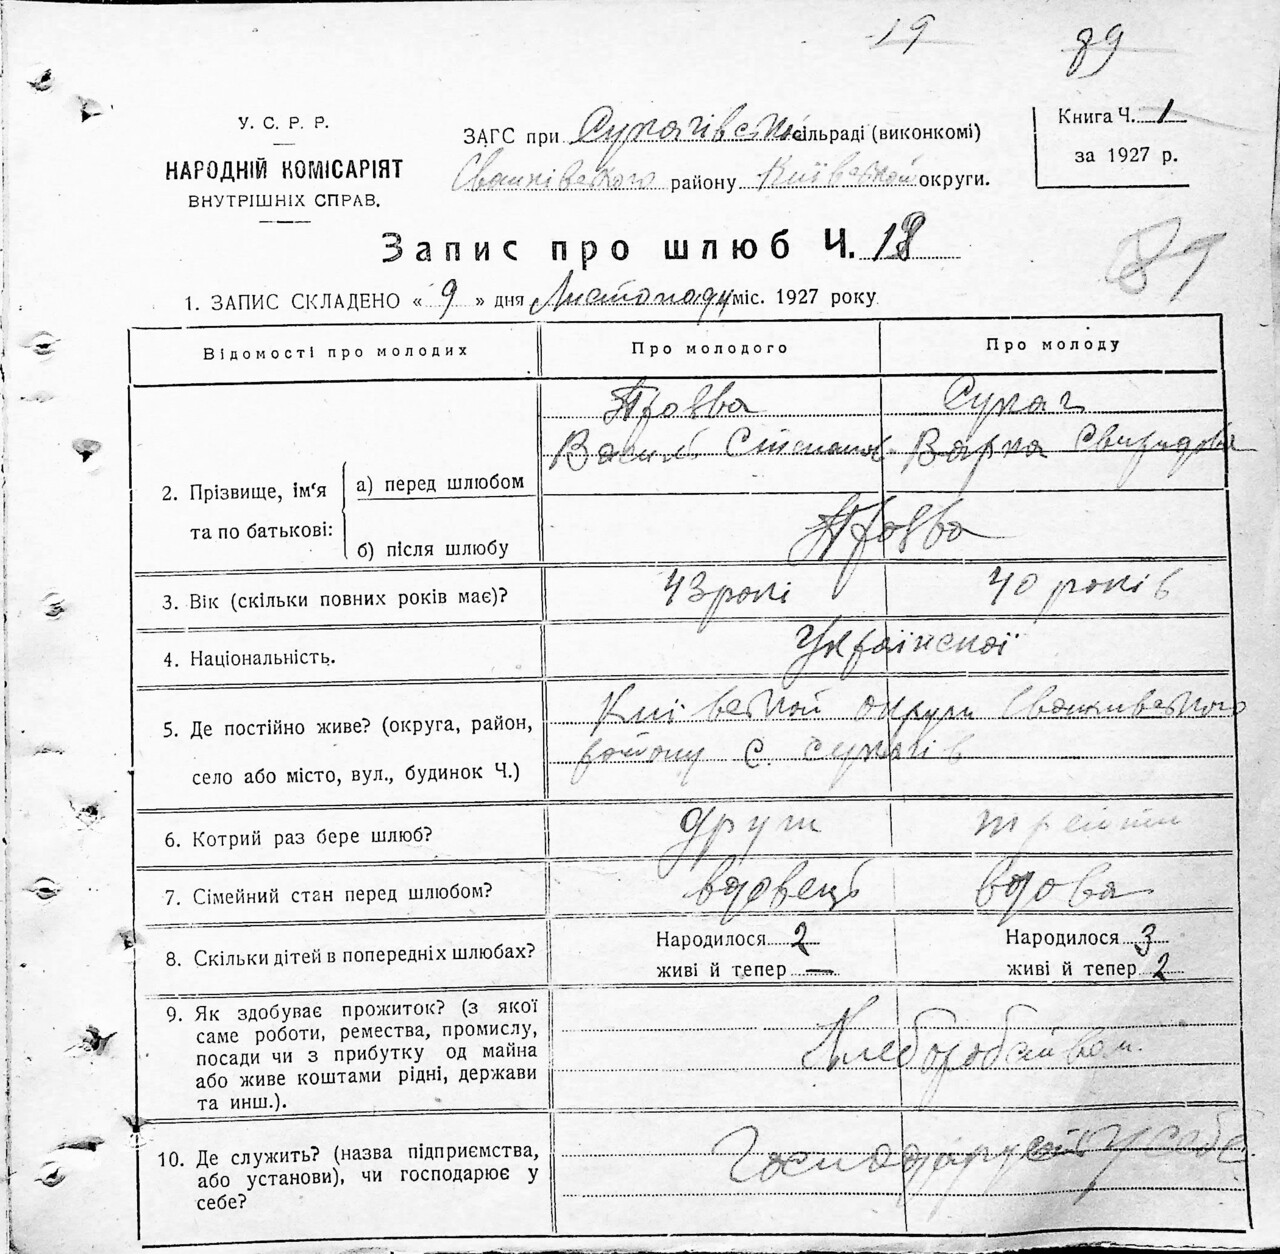 19 89
У. С. Р. Р.
НАРОДНІЙ КОМІСАРІЯТ
ВНУТРІШНІХ СПРАВ.
ЗАГС при Сукачівській сільраді (виконкомі)
району Київської округи.
Книга Ч. 1
за 1927 р.
Запис про шлюб Ч. 18
89
1. ЗАПИС СКЛАДЕНО « 9 » дня Листопаду міс. 1927 року
Відомості про молодих Про молодого Про молоду
2. Прізвище, ім'я та по батькові:
а) перед шлюбом
Сукач
Василь Степанов Варка Свиридова
б) після шлюбу
3. Вік (скільки повних років має)? 43 рокі 40 років
4. Національність. Української
5. Де постійно живе? (округа, район,
село або місто, вул., будинок Ч.)
Київської округи
району С. Сукачів
6. Котрий раз бере шлюб? други третти
7. Сімейний стан перед шлюбом? вдовець вдова
8. Скільки дітей в попередніх шлюбах?
Народилося 2 Народилося 3
живі й тепер — живі й тепер 2
9. Як здобуває прожиток? (з якої
саме роботи, ремества, промислу,
посади чи з прибутку од майна
або живе коштами рідні, держави
та инш.).
Хлеборобством.
10. Де служить? (назва підприємства,
або установи), чи господарює у
себе?
Господарують у себе.